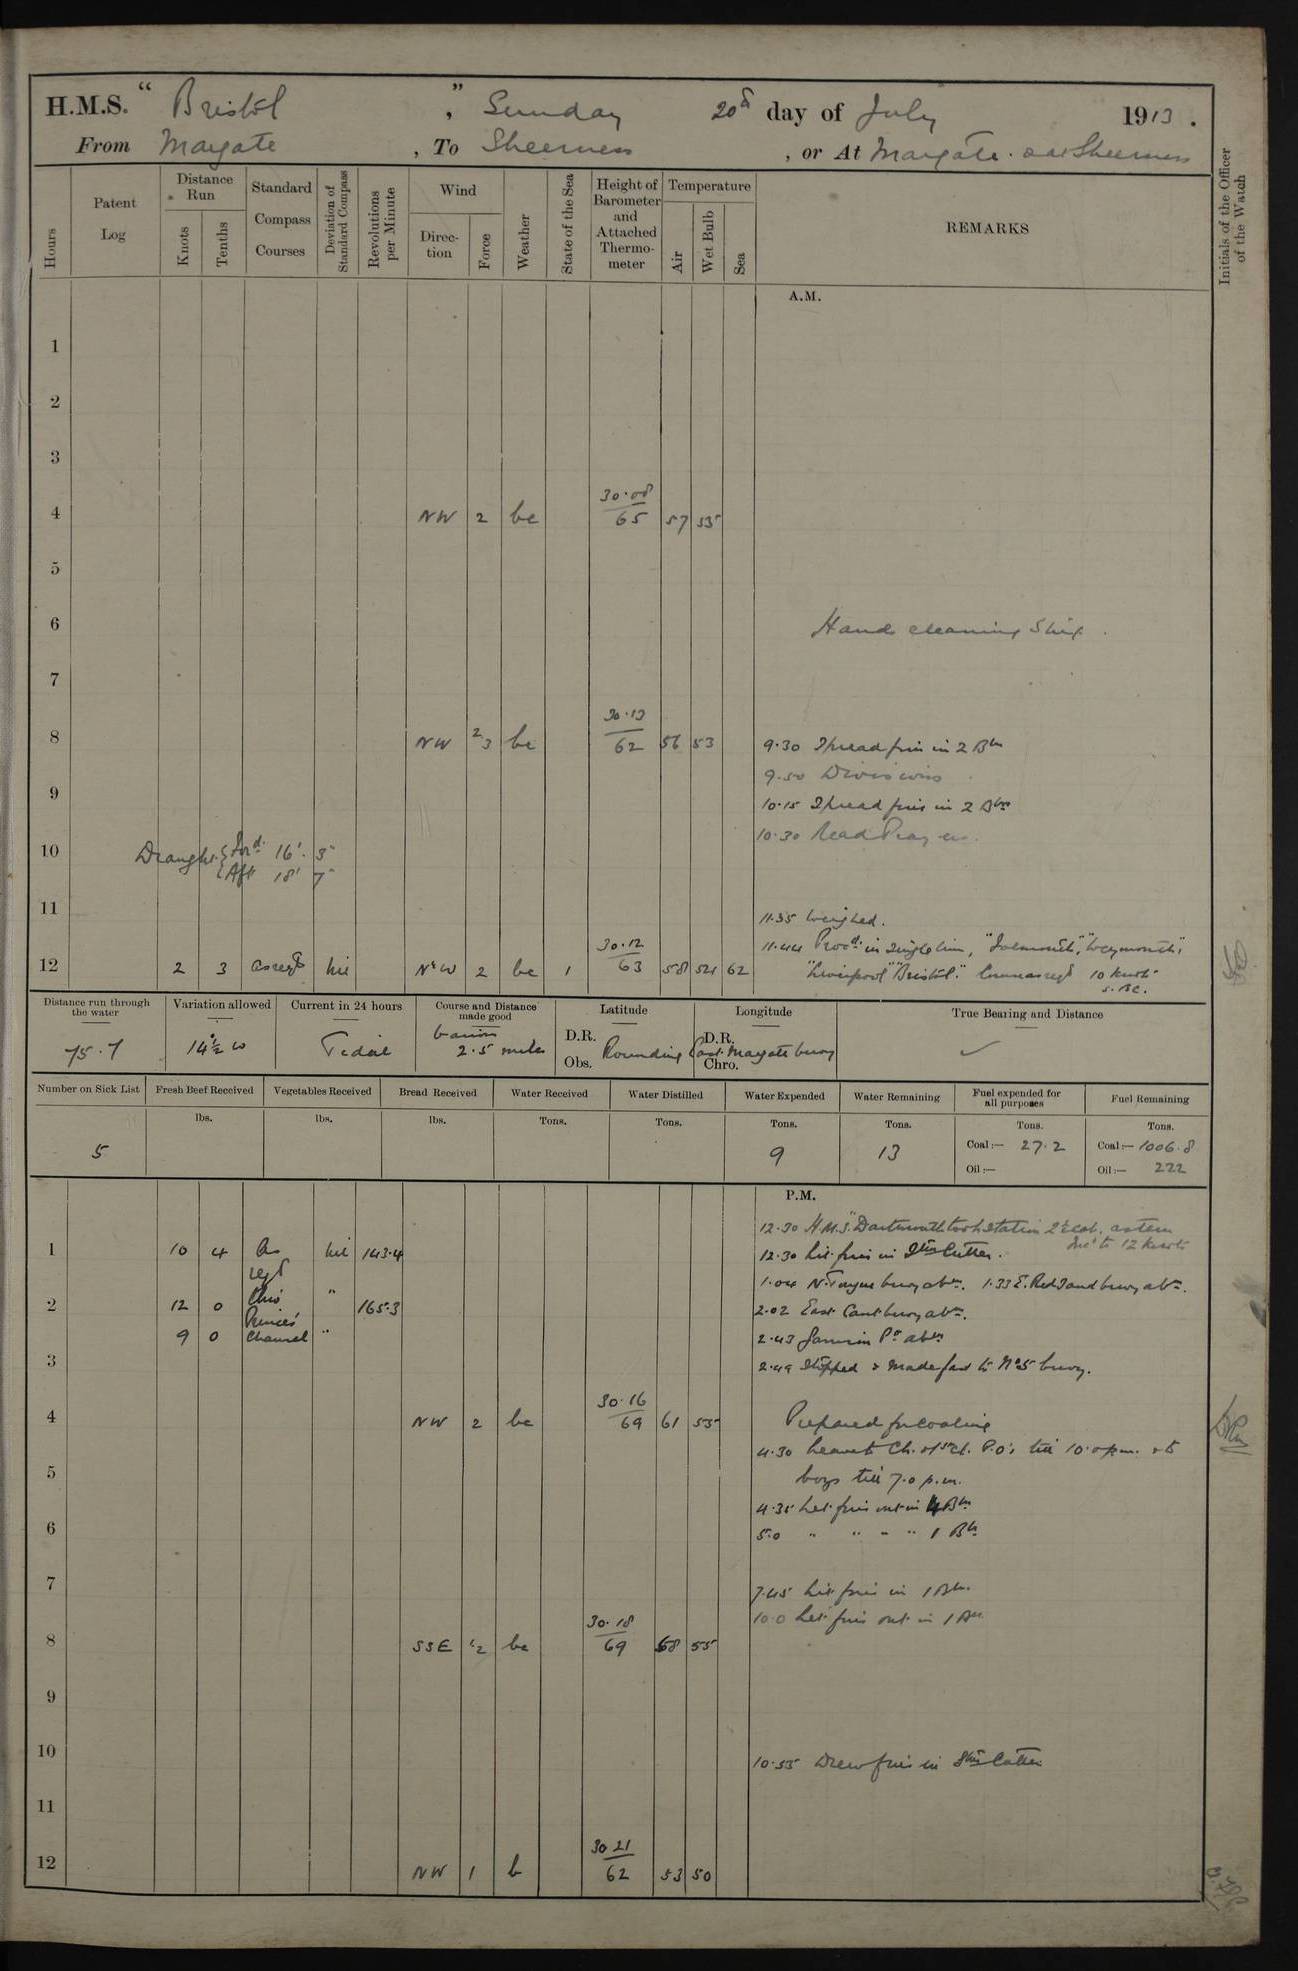 H.M.S. "Bristol", Sunday 20th day of July 1913.
From Margate, To Sheerness, or At Margate. & at Sheerness
Hours
Patent Log
Distance Run
Knots
Tenths
Standard Compass Courses
Deviation of Standard Compass
Revolutions per Minute
Wind
Direction
Force
Weather
State of the Sea
Height of Barometer and Attached Thermometer
Temperature
Air
Wet Bulb
Sea
REMARKS
Initials of the Officer of the Watch
A.M.
1
2
3
4 NW 2 bc 30.08 65 57 55
5
6 Hands cleaning Ship.
7
8 NW 2/3 bc 30.13 62 56 53
9.30 Spread fires in 2 Brs
9.50 Divisions
9
10.15 Spread fires in 2 Brs
10.30 Read Prayers.
10 Draught. Ford. 16'. 3"
Aft 18' 7"
11
11.35 Weighed.
11.44 Procd. in single line, "Falmouth", "Weymouth",
12 2 3 as reqd nil NW 2 bc 1 30.12 63 58 54 62
"Liverpool" "Bristol". Course as reqd 10 knots
Distance run through the water
75.7
Variation allowed
14½ W
Current in 24 hours
Tidal
Course and Distance made good
Various
2.5 miles
Latitude
D.R.
Obs.
Longitude
D.R.
Chro.
Rounding East Margate buoy
True Bearing and Distance
Number on Sick List
5
Fresh Beef Received
lbs.
Vegetables Received
lbs.
Bread Received
lbs.
Water Received
Tons.
Water Distilled
Tons.
Water Expended
Tons.
9
Water Remaining
Tons.
13
Fuel expended for all purposes
Tons.
Coal:— 27.2
Oil:—
Fuel Remaining
Tons.
Coal:— 1006.8
Oil:— 222
P.M.
12.30 H.M.S. "Dartmouth" took station 2 cab. astern
Incd to 12 knots
1 10 4 As reqd nil 143.4
12.30 Lit fires in Stm Cutter.
1.04 N. Tongue buoy abm. 1.33 E. Red Sand buoy abm.
2 12 0 thro' Princes Channel " 165.3
9 0 "
2.02 East Cant buoy abm.
2.43 Garrison Pt abm
3
2.49 Stopped & made fast to No 5 buoy.
4 NW 2 bc 30.16 69 61 55
Prepared for coaling
4.30 Leave to Ch. & 1st Cl. P.O's till 10.0 p.m. & to
5 boys till 7.0 p.m.
4.35 Let fires out in 4 Brs
6
5.0 " " " " 1 Br
7
7.45 Lit fires in 1 Br.
10.0 Let fires out in 1 Br
8 SSE 1/2 bc 30.18 69 58 55
9
10
10.55 Drew fires in Stm Cutter
11
12 NW 1 b 30.21 62 53 50